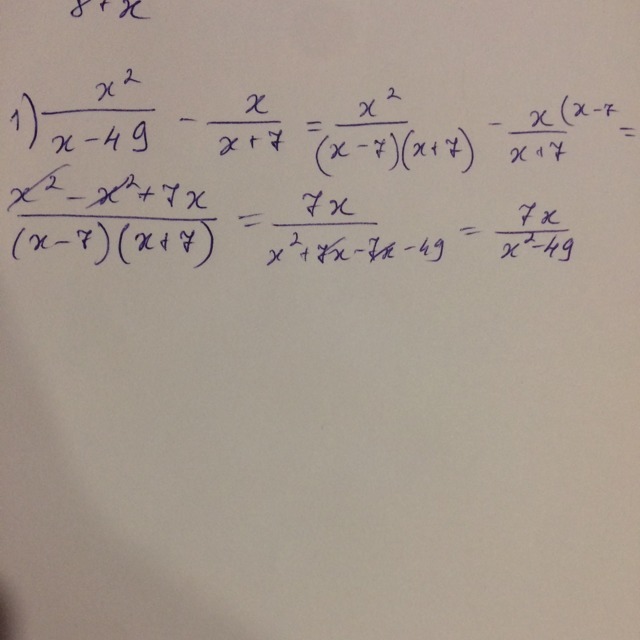 8+x
1) x²/(x-49) - x/(x+7) = x²/((x-7)(x+7)) - x(x-7/(x+7) =
(x²-x²+7x)/((x-7)(x+7)) = 7x/(x²+7x-7x-49) = 7x/(x²-49)